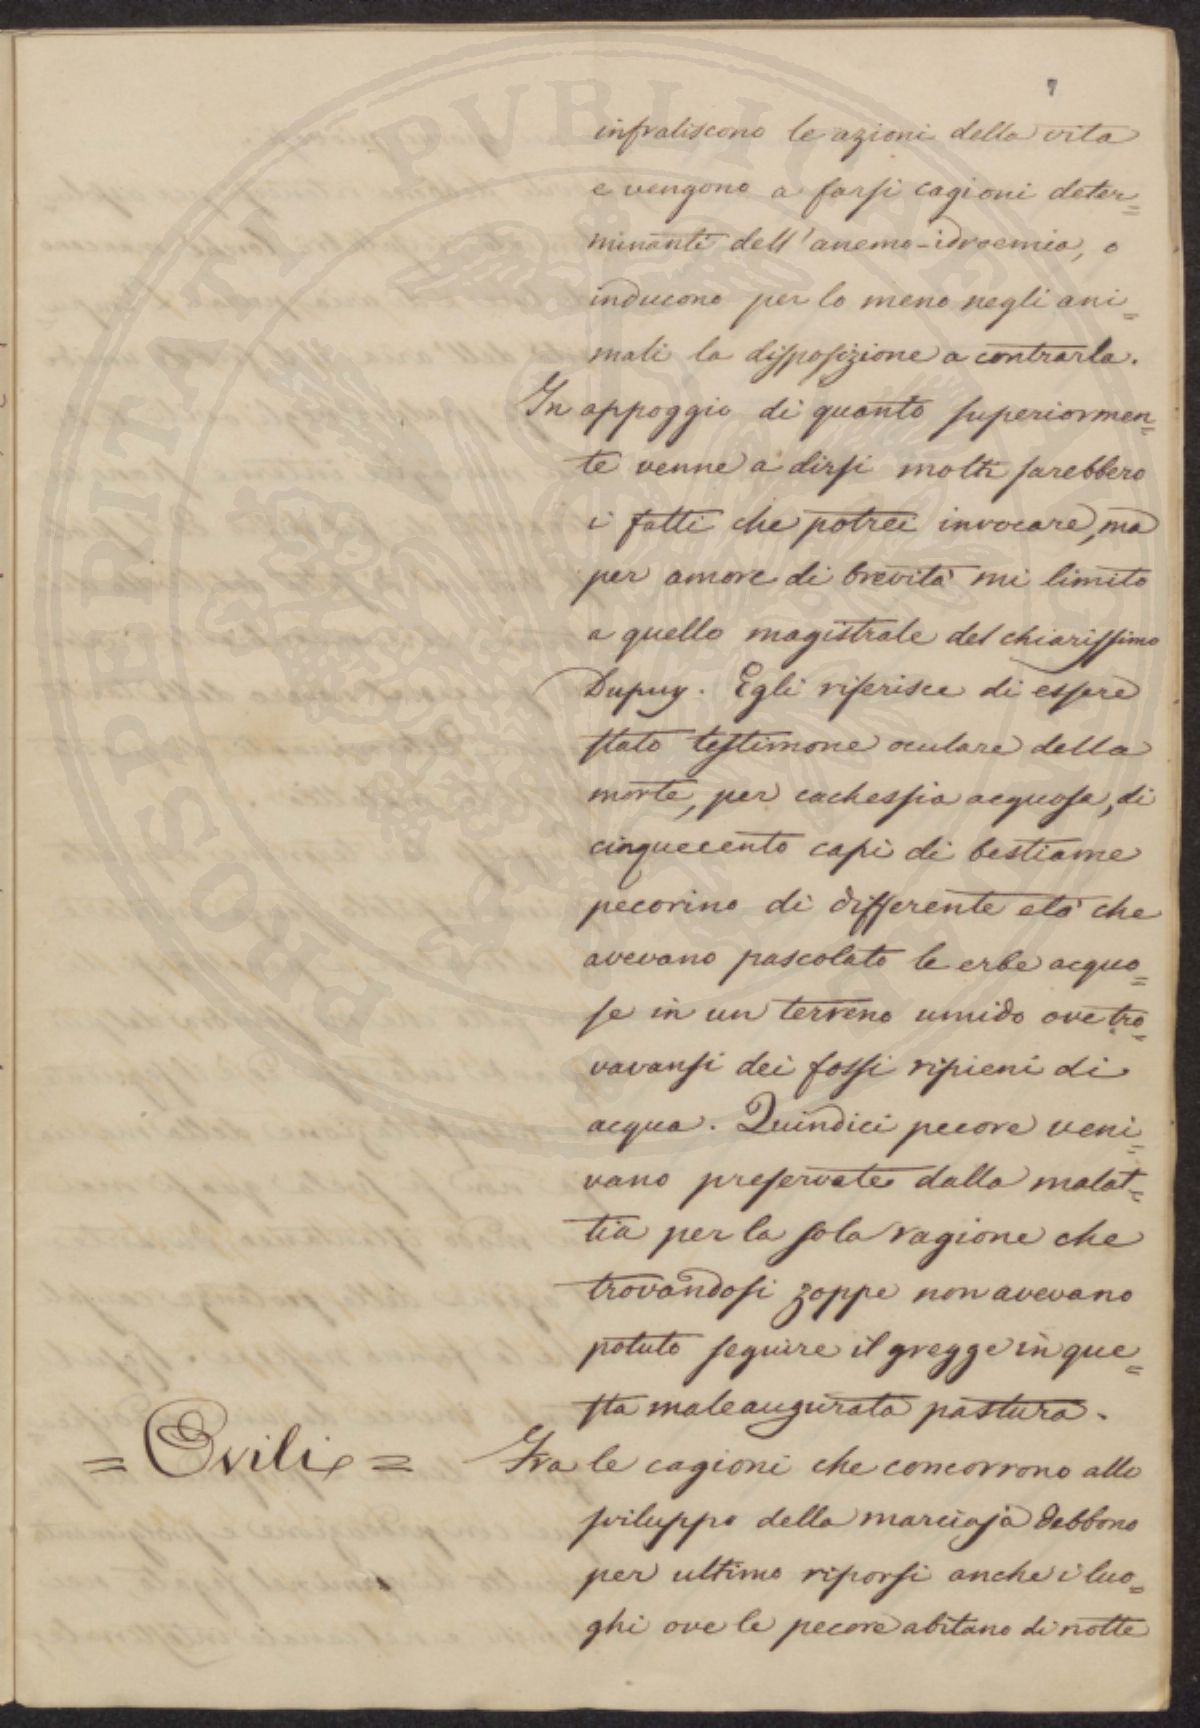 7
infraliscono le azioni della vita
e vengono a farsi cagioni deter=
minanti dell'anemo-idroemia, o
inducono per lo meno negli ani=
mali la disposizione a contrarla.
In appoggio di quanto superiormen=
te venne a dirsi molti sarebbero
i fatti che potrei invocare, ma
per amore di brevità mi limito
a quello magistrale del chiarissimo
Dupuy. Egli riferisce di essere
stato testimone oculare della
morte, per cachessia acquosa, di
cinquecento capi di bestiame
pecorino di differente età che
avevano pascolato le erbe acquo=
se in un terreno umido ove tro=
vavansi dei fossi ripieni di
acqua. Quindici pecore veni=
vano preservate dalla malat=
tia per la sola ragione che
trovandosi zoppe non avevano
potuto seguire il gregge in que=
sta maleaugurata pastura.
= Ovili =
Fra le cagioni che concorrono allo
sviluppo della marciaja debbono
per ultimo riporsi anche i luo=
ghi ove le pecore abitano di notte
PROSPERITATI PVBLICAE